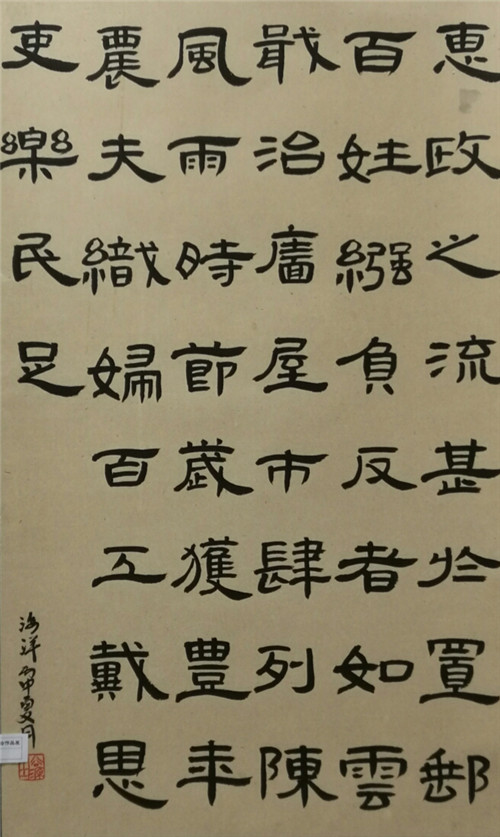 惠政之流甚於置郵
百姓繦負反者如雲
戢治廧屋市肆列陳
風雨時節歲獲豐年
農夫織婦百工戴恩
吏樂民足
海洋丙申夏月